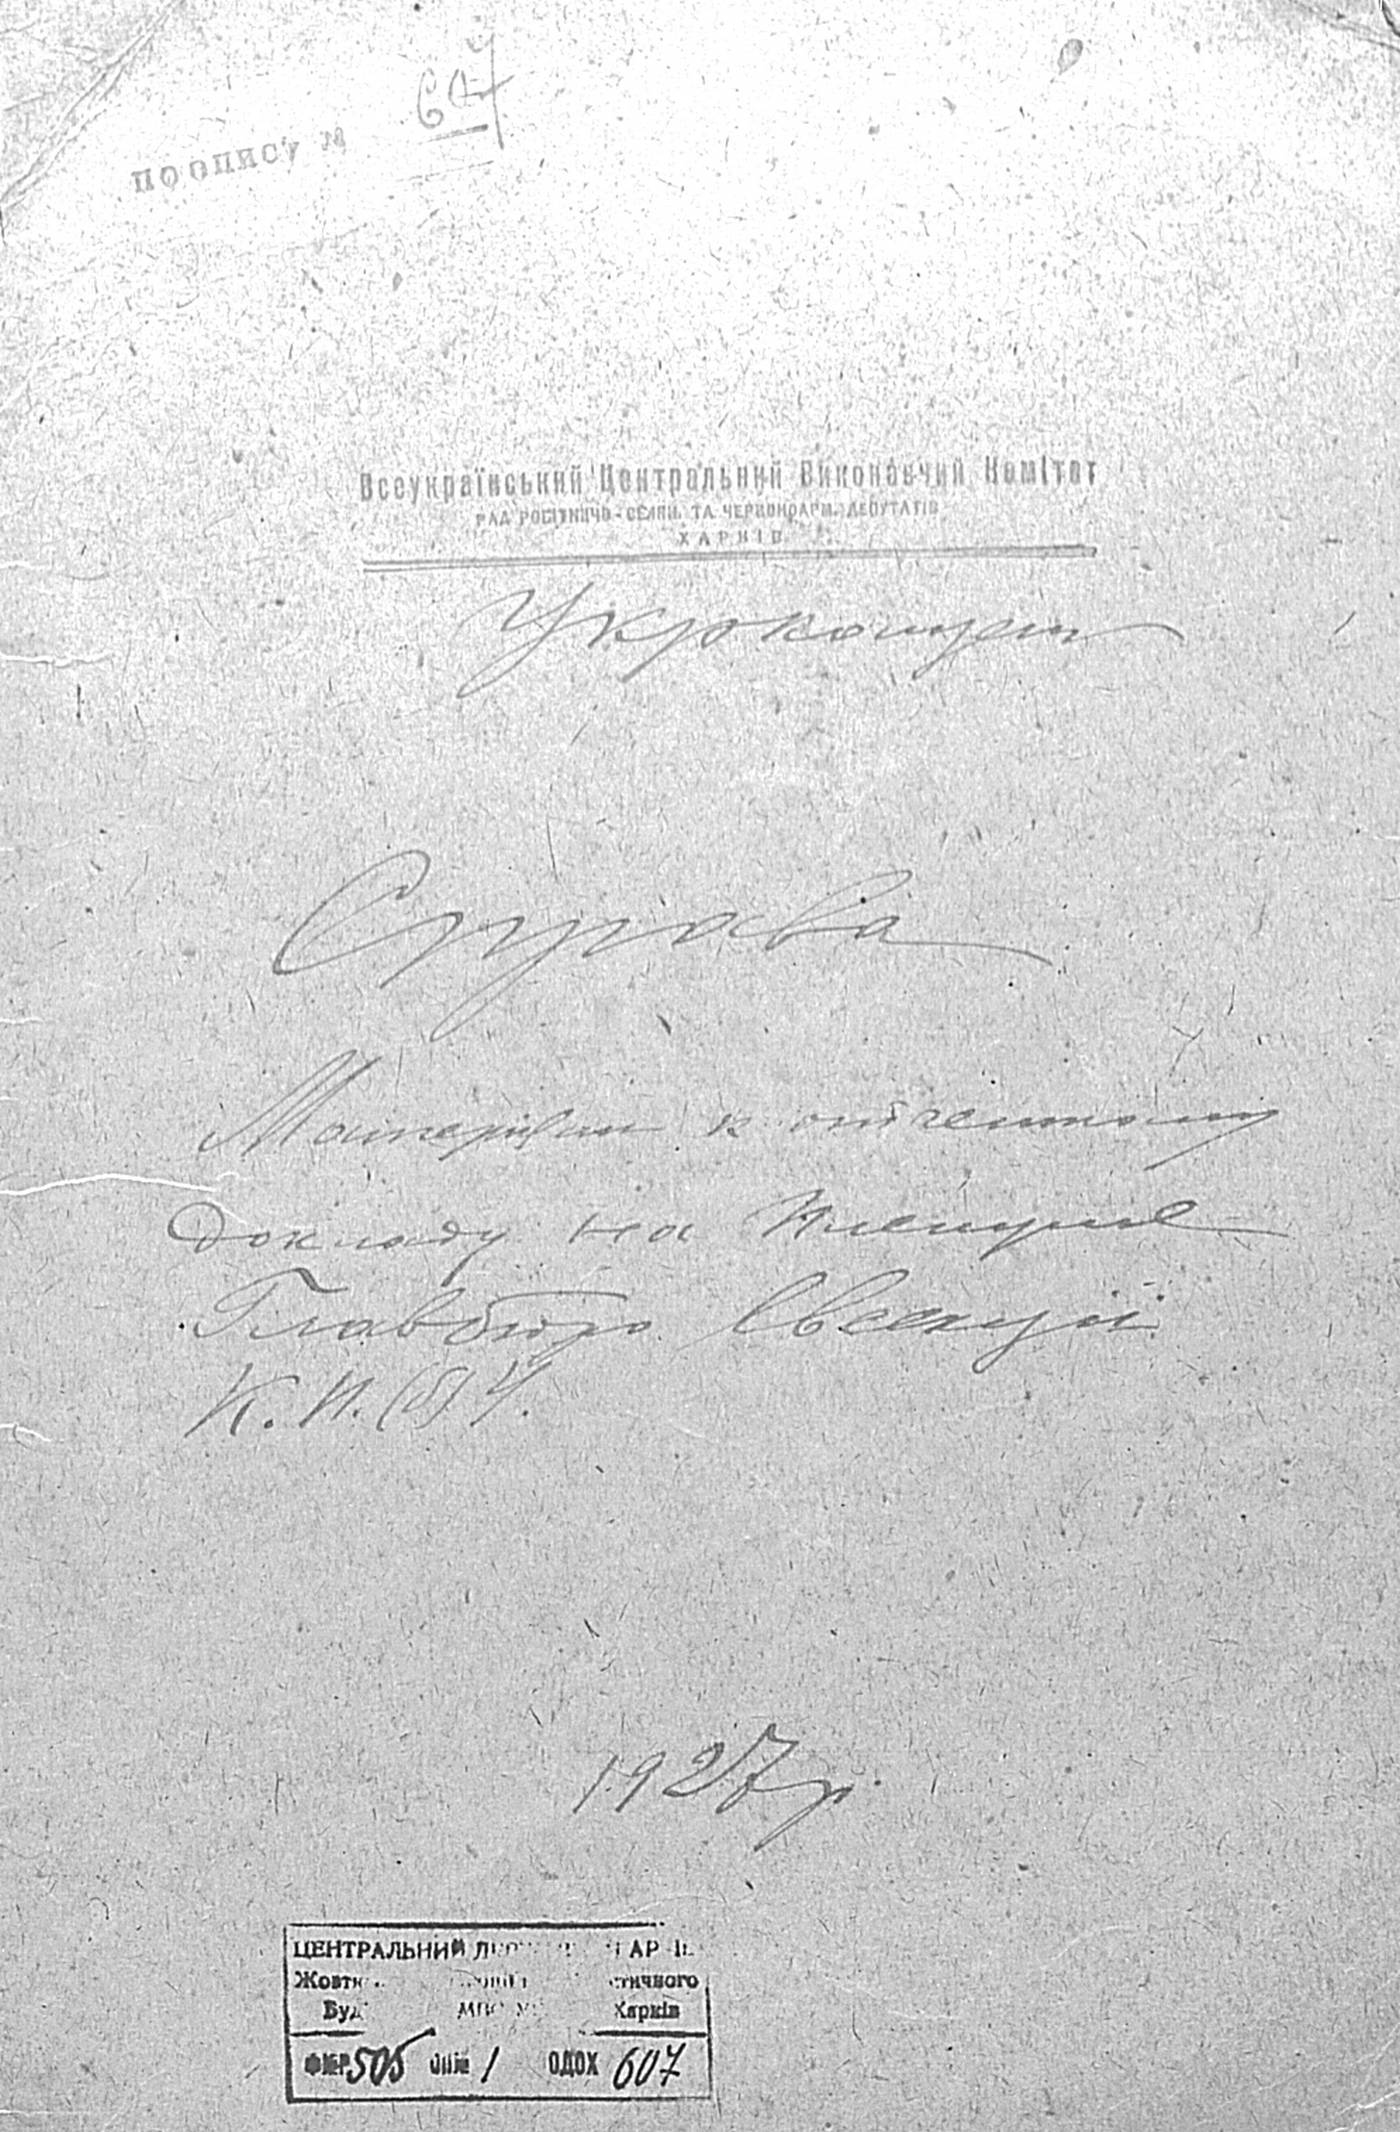 по опису № 607
Всеукраїнський Центральний Виконавчий Комітет
РАД РОБІТНИЧО-СЕЛЯН. ТА ЧЕРВОНОАРМ. ДЕПУТАТІВ
ХАРКІВ
Справа
Материалы к отчетному
докладу на Пленуме
Главбюро Евсекций
К.П.(б)У.
1927 р.
ЦЕНТРАЛЬНИЙ
Харків
505 1 ОДОХ 607